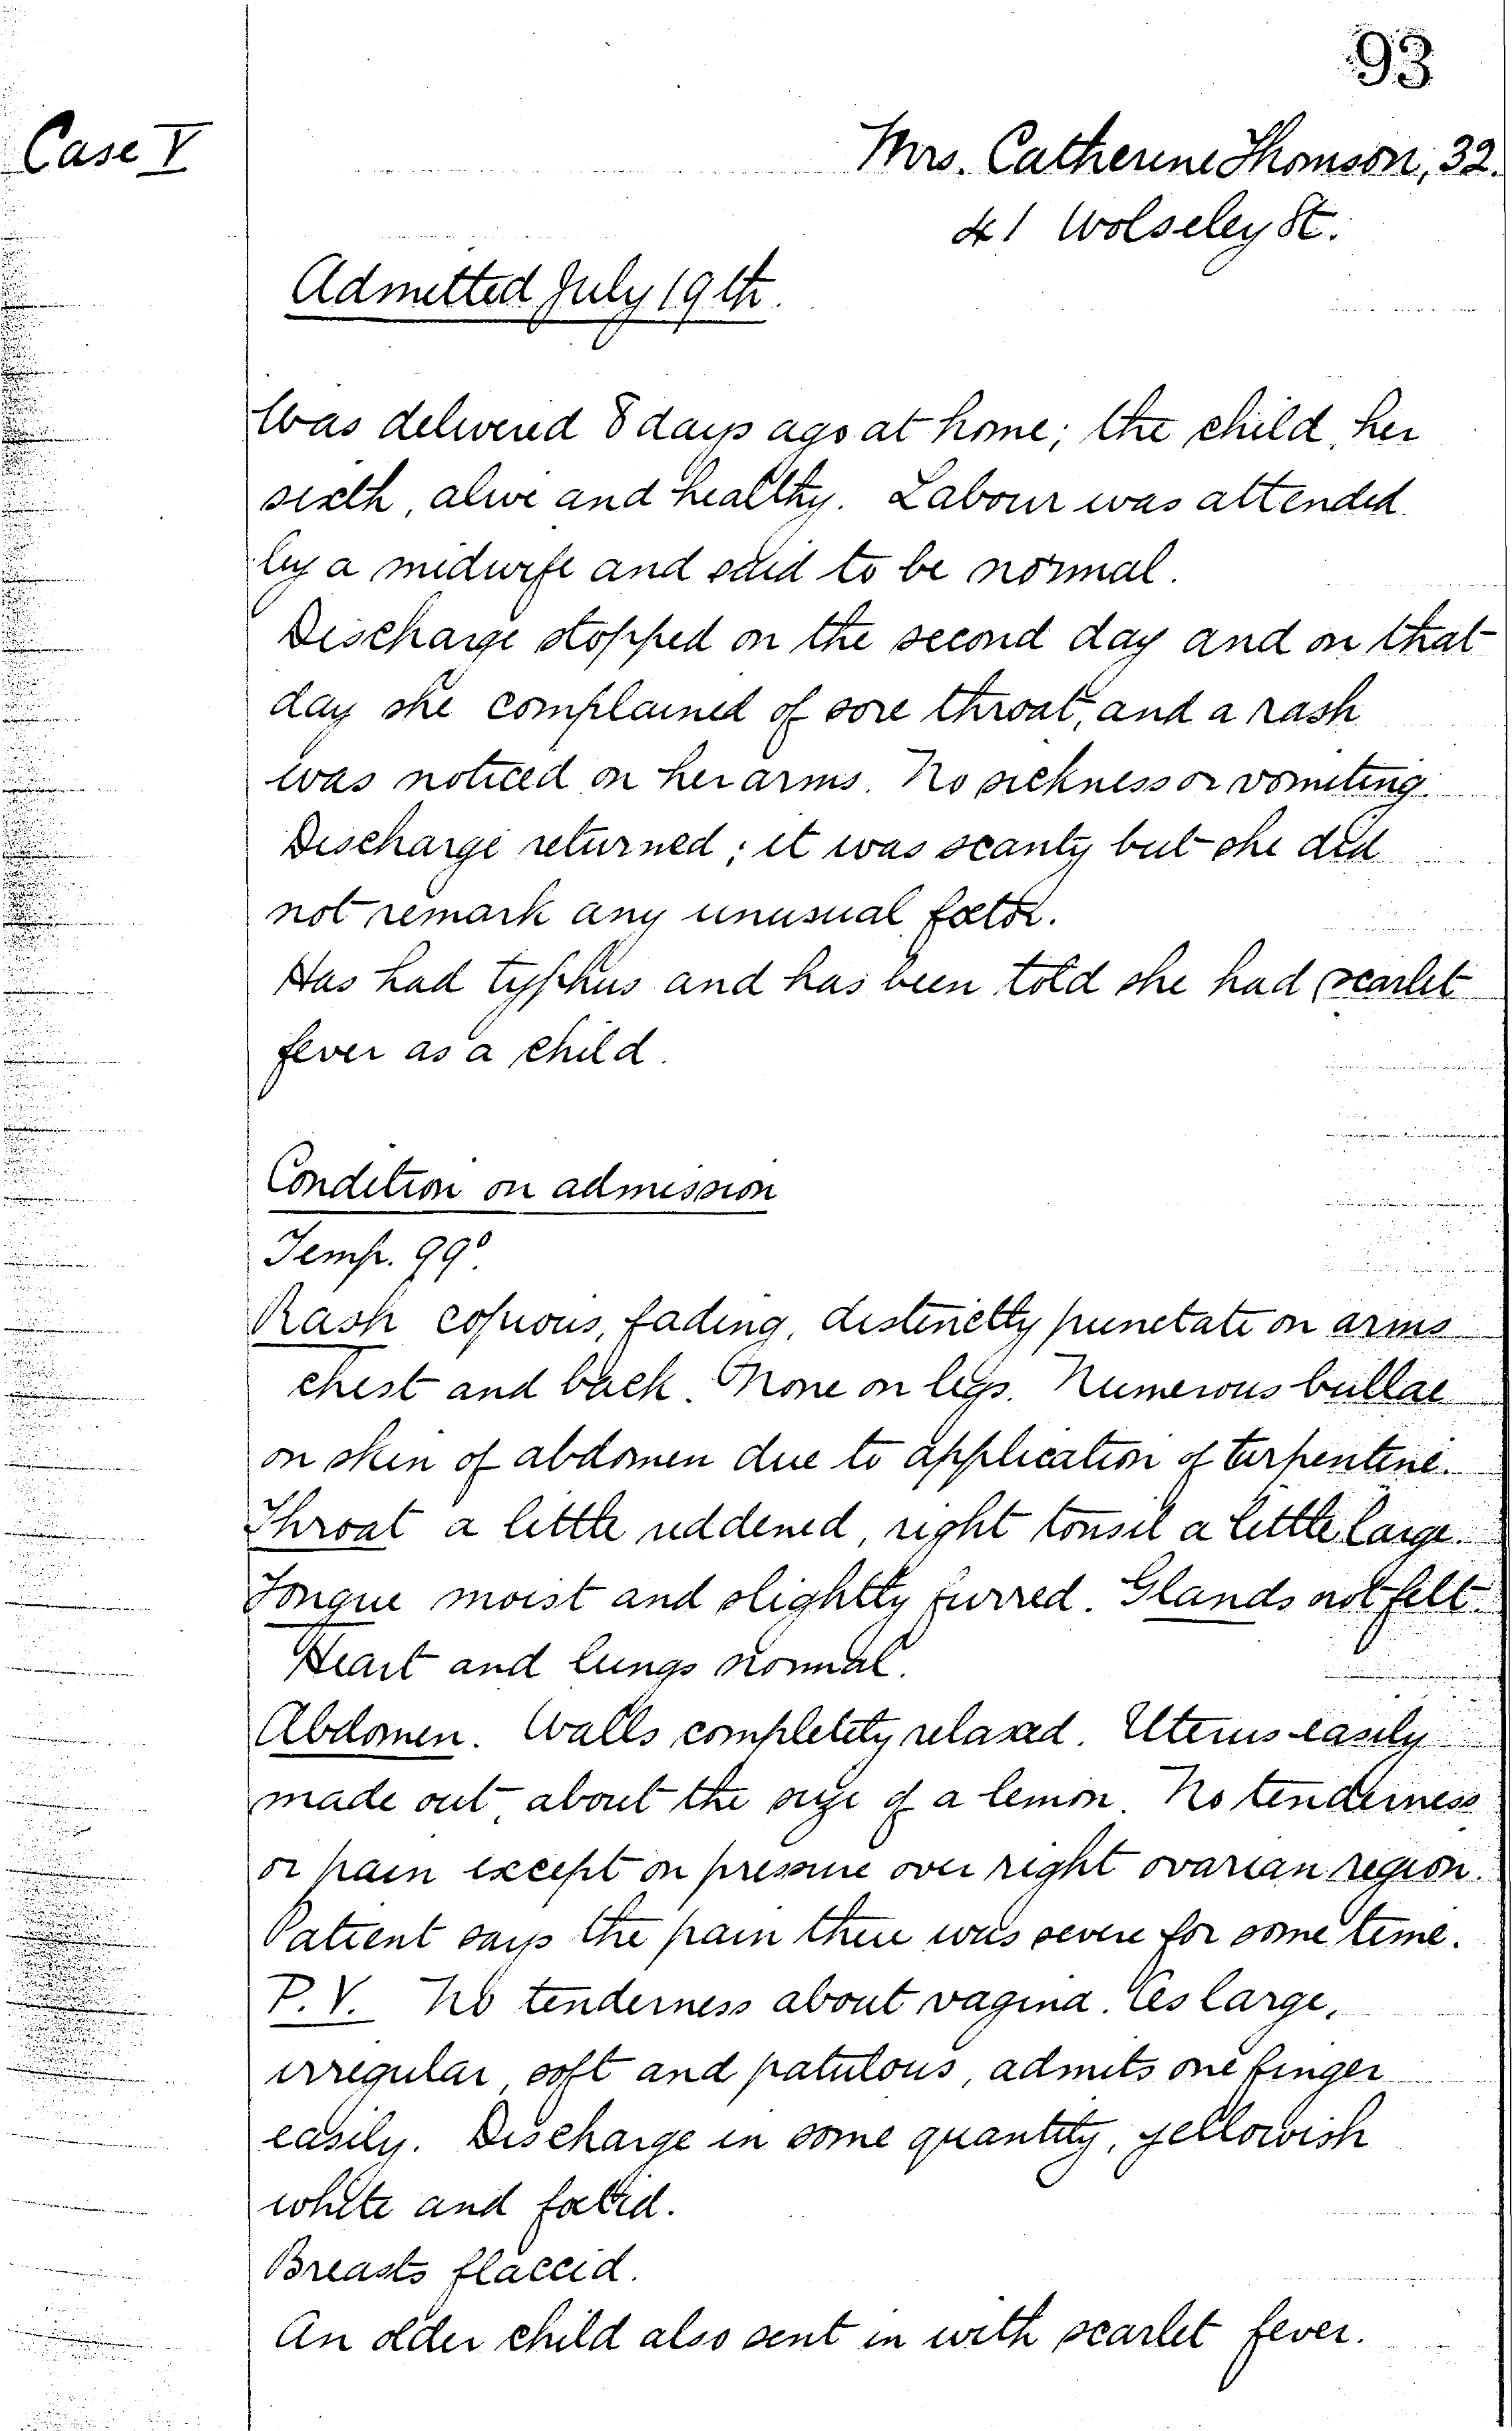 93
Case V
Mrs. Catherine Thomson, 32.
41 Wolseley St.
Admitted July 19th.
Was delivered 8 days ago at home; the child, her
sixth, alive and healthy. Labour was attended
by a midwife and said to be normal.
Discharge stopped on the second day and on that
day she complained of sore throat, and a rash
was noticed on her arms. No sickness or vomiting.
Discharge returned; it was scanty but she did
not remark any unusual foetor.
Has had typhus and has been told she had scarlet
fever as a child.
Condition on admission
Temp. 99°.
Rash copious, fading, distinctly punctate on arms
chest and back. None on legs. Numerous bullae
on skin of abdomen due to application of turpentine.
Throat a little reddened, right tonsil a little large.
Tongue moist and slightly furred. Glands not felt.
Heart and lungs normal.
Abdomen. Walls completely relaxed. Uterus easily
made out, about the size of a lemon. No tenderness
or pain except on pressure over right ovarian region.
Patient says the pain there was severe for some time.
P.V. No tenderness about vagina. Os large,
irregular, soft and patulous, admits one finger
easily. Discharge in some quantity, yellowish
white and foetid.
Breasts flaccid.
An older child also sent in with scarlet fever.